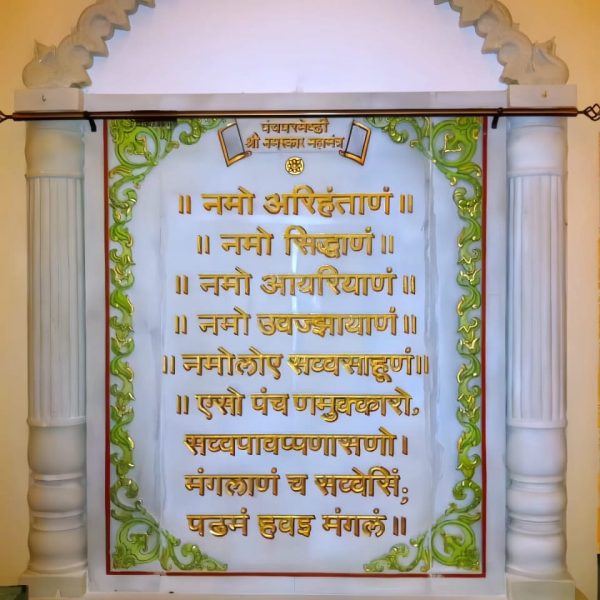 पंचपरमेष्ठी
श्री नमस्कार महामंत्र
॥ नमो अरिहंताणं ॥
॥ नमो सिद्धाणं ॥
॥ नमो आयरियाणं ॥
॥ नमो उवज्झायाणं ॥
॥ नमोलोए सव्वसाहूणं ॥
॥ एसो पंच णमुक्कारो,
सव्वपावप्पणासणो।
मंगलाणं च सव्वेसिं;
पढमं हवइ मंगलं ॥